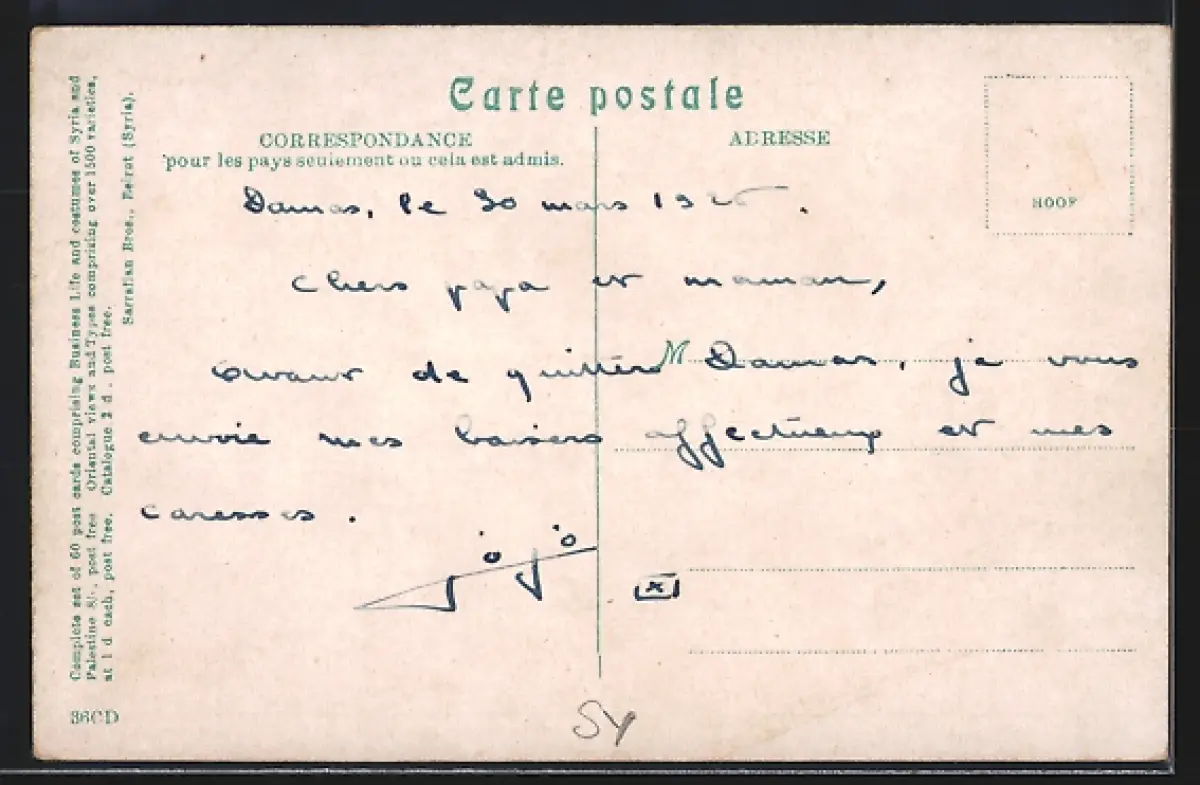 Carte postale
CORRESPONDANCE
pour les pays seulement ou cela est admis.
ADRESSE
Damas, le 30 mars
Chers papa et maman,
Avant de quitter Damas, je vous
envoie mes baisers affectueux et mes
caresses.
jojo
M
SY
36CD
Complete set of 60 post cards comprising Business Life and costumes of Syria and
Palestine 8/-, post free Oriental views and Types comprising over 1500 varieties,
at 1 d each, post free. Catalogue 2 d. post free.
Sarrafian Bros., Beirut (Syria).